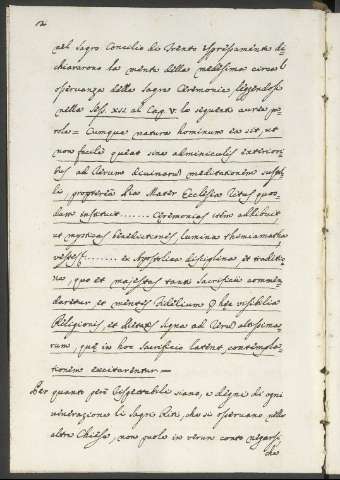 12
nel Sagro Concilio di Trento espressamente di-
chiararono la mente della medesima circa
osservanza delle Sagre Ceremonie leggendosi
nella Sess. XII al Cap. V le seguenti auree pa-
role = Cumque natura hominum ea sit, ut
non facile queat sine adminiculis exteriori-
bus ad rerum divinarum meditationem
propterea Pia Mater Ecclesia ritus quos-
dam instituit ....... Ceremonias item adhibuit
ut mysticas benedictiones, lumina, thimiamatha,
vestes ....... ex Apostolica disciplina et traditio-
ne, quo et majestas tanti Sacrificii commen-
daretur et mentes fidelium p hec visibilia
Religionis, et Pietatis signa ad rerum altissima-
rum, quę in hoc Sacrificio latent, contempla-
tionem excitarentur =
Per quanto però rispettabili siano, e degni di ogni
venerazione li Sagri Riti, che si osservano nelle
altre Chiese, non puole in verun conto negarsi,
che